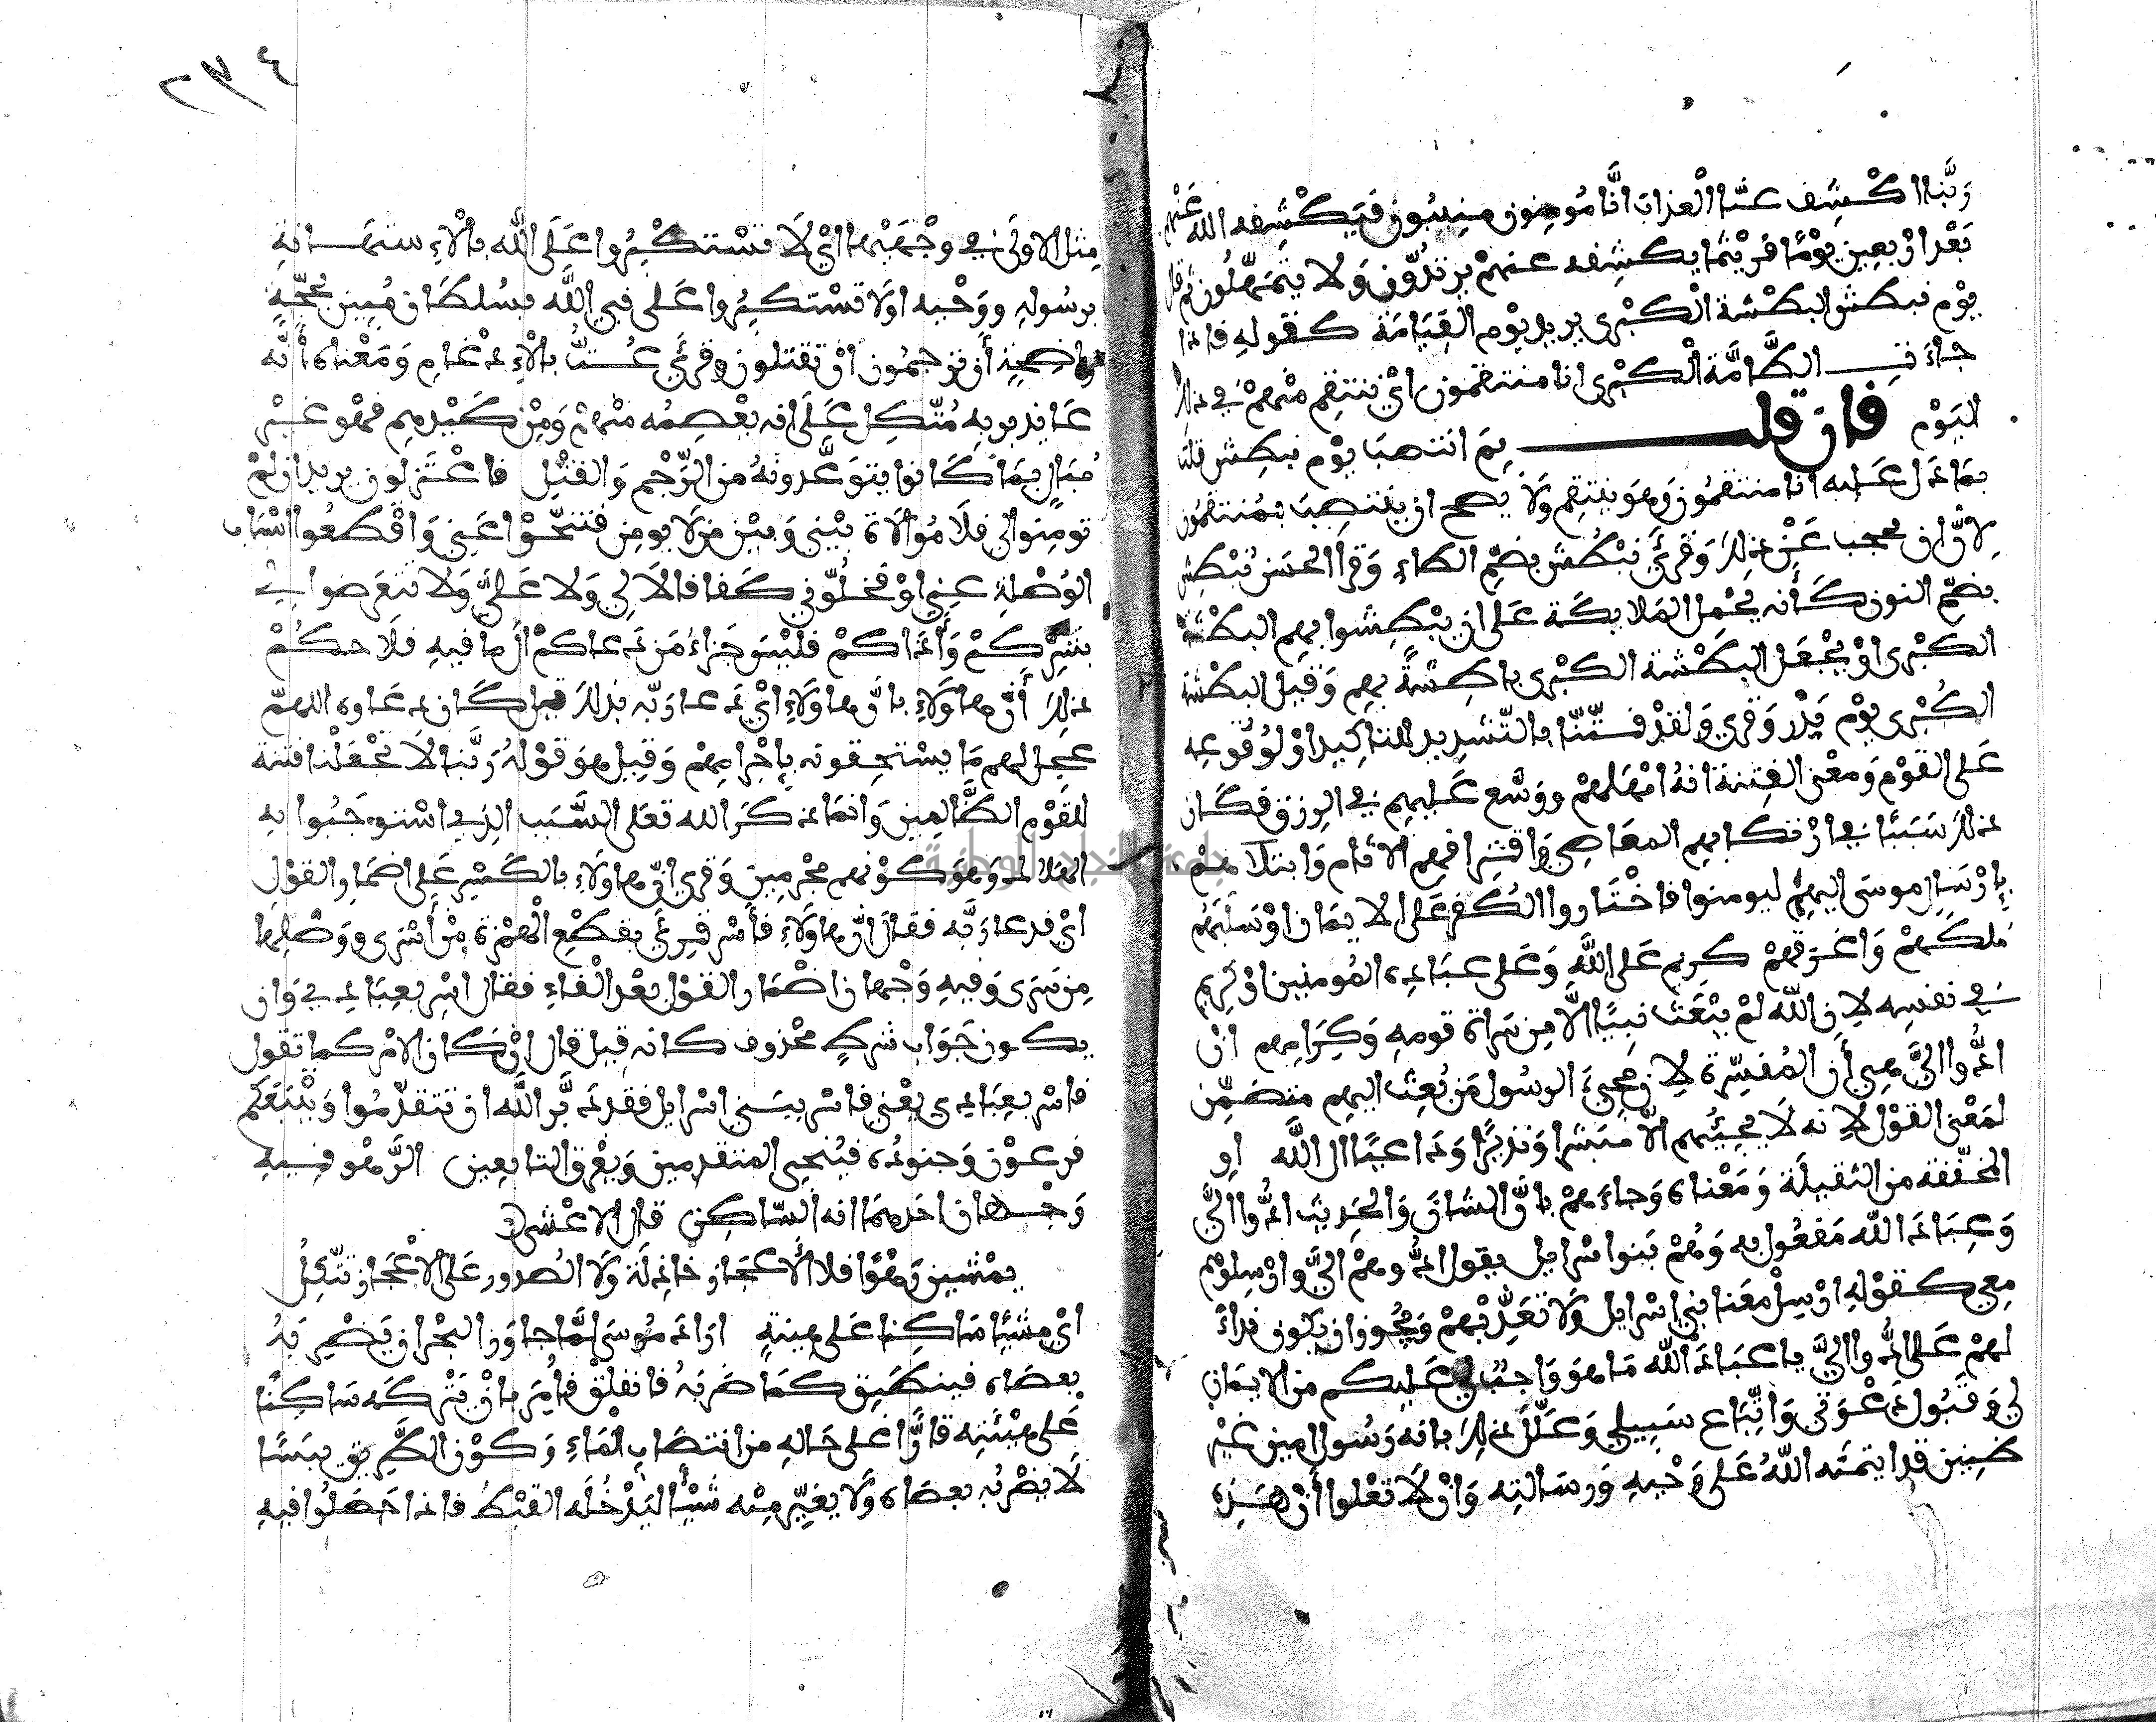 رَبَّنا اكْشِف عنّا الْعذاب انَّا مُومِنون منِيبُون فيَكْشِفه الله عَنْهم
بَعْد ارْبعِين يوْمًا فرَيْثما يكشِفه عنهمْ يرتدُّون وَلا يتمَهّلُون ثم قال
يوْم نبطش البطْشة الْكبْرى يريد يوْم القِيَامَة كقولهِ فاذا
جاءَت الطَّامَّة الْكبْرى انا منتقمون ايْ ننتقِم منْهمْ في ذلك
اليَوْم فان قلت بِمَ انتصبَ يوْم نبطِش قلت
بمَا دَل عَليه انا منتقمُون وهوَ ينتقِم وَلَا يصح ان يَنتصِبَ بمُنتقمُون
لِأنّ ان تحجب عَنْ ذلِك وَقرِئَ نبْطُش بضَمِّ الطاءِ وَقرا الحسَن نُبْطِش
بضمِّ النون كأنه يحْمل المَلايكَة عَلى ان يبْطِشوا بهِم البطْشة
الكبْرى اوْ يجْعَل البطْشة الكبْرى باطِشَةً بهِم وَقيل البطْشة
الكُبْرى يوْم بَدْر وَقرِي وَلقدْ فتّنّا بالتّشدِيد للتاكِيد اوْ لوُقُوعِه
عَلى القوْم وَمعْنى الفِتنة انهُ امْهَلهمْ ووَسَّع عَليهِم في الرِزق فكَان
ذلك سَبَبًا في ارْتكابهِم المعَاصِي وَاقتِرافهِم الآثام وَابتلاهمْ
بِارْسَالِ موسَى اليهمْ ليومنوا فاخْتَاروا الكُفر عَلى الايمَان اوْ سَلبَهمْ
مُلكَهمْ وَاغرَقهمْ كرِيم عَلى اللَّهِ وَعَلى عبَادِه المُومنين اوْ كرِيم
في نفسِه لِان اللّه لمْ يبْعَث نبيًّا الّا مِن سَراة قومهِ وَكِرَامِهم انْ
ادُّوا اليَّ هِي أن المُفسِّرة لِان مجِيءَ الرسُول مَن بُعِث اليهِم متضمِّن
لمَعْنى القوْل لِانه لَا يجيئهم الّا مبَشِّرا وَنذيرًا وَدَاعيًا الى اللَّه او
المخفّفة من الثقيلَة وَمَعْناه وَجاءَهمْ بانَّ الشانَ وَالحَدِيث ادُّوا اليَّ
وَعبَادَ اللّه مَفعُول به وَهُمْ بَنوا سْرايل يقول ادُّوهمْ اليَّ وارْسِلوْهم
معِي كقوْلهِ ارْسِلْ مَعَنا بني اسْرايل وَلَا تعَذِّبْهمْ وَيجُوز ان يكون نداءً
لهمْ عَلى ادُّوا اليَّ يا عبَادَ اللّه مَا هوَ وَاجبٌ لي عَليكم من الايمَان
لي وَقبُول دَعْوَتي وَاتّبَاع سَبيلي وَعَلّلَ ذلك بانه رَسُول امين غيْر
ظنِين قد ايتمنَه اللّهُ عَلى وَحْيهِ وَرسَالتِه وَانْ لَا تعْلوا أنْ هَذِه
٢٣٤
مِثل الاولَى في وجْهَيْها ايْ لَا تسْتكْبِرُوا عَلَى اللَّه بالْاِستهَانةِ
برسُولهِ ووَحْيه اوَلَا تسْتكبِرُوا عَلى نبيِّ اللَّه بسُلطَانٍ مُبِين بحجّةٍ
واضحَةٍ أن ترْجمُون انْ تقتلون وقرِئَ عُتُّ بالْاِدْغامِ وَمَعْناه أنَّه
عَايذ بربهِ مُتّكِل عَلَى انه يعْصِمُه منْهمْ وَمِنْ كَيْدهِم فهْو غيْر
مُبَالٍ بمَا كَانوا يتوَعَّدونهُ من الرَّجْم وَالقتْل فاعْتَزلون يريد ان لمْ
تومِنوا لي فلَا مُوالَاة بيْني وَبيْن من لَا يومِن فتنحّوْا عَني وَاقْطعُوا اسْبَاب
الوُصْلةِ عني اوْ فخلُّوني كفافا لا لي وَلا عَليَّ وَلا تتعَرضوا لي
بشرِّكمْ وَأذَاكمْ فليْسَ جَزاءُ مَن دَعاكمْ الى ما فيهِ فلَاحكُمْ
ذلك أنّ هاوُلَاءِ بانَّ هاوَلَاءِ ايْ دَعا رَبّه بذلك قيل كَان دعَاوه اللهمّ
عجِل لهم مَا يسْتحِقونه بِاجْرامِهمْ وَقِيل هوَ قوْلهُ رَبَّنا لَا تجْعَلْنا فتنة
للقوْم الظَّالمِين وَانمَا ذكَر الله تعَلى السَّبب الذِي اسْتوْجَبُوا به
الهَلاكَ وَهوَ كوْنهم مجْرمِين وَقرِي اِنّ هاوَلَاءِ بالكَسْرِ عَلى اضمَار القوْلِ
ايْ فدعا رَبَّه فقال انَّ هاوَلَاءِ فأسْر قرِئَ بقطْع الْهمْزة مِنْ أسْرى ووَصْلها
مِن سَرَى وَفيهِ وَجْهان اضْمَار القوْل بعْد الْفاءِ فقال اسْرِ بعِبَادِي وَان
يكون جَوَاب شرطٍ محْذوف كانه قِيل قال انْ كَان الامْر كما تقول
فاسْر بعِبَادِي يعْني فاسْر ببَني اسْرايل فقد دَبَّر اللَّه ان تتقدّمُوا وَيتْبَعَكم
فرعوْن وَجنودُه فيُنجِي المتقدمِين وَيغْرق التابعِين الرَّهْو فِيهِ
وَجْهان احدهمَا انه السّاكِن قال الاعْشى
يمْشين رَهْوًا فلا الأعْجَاز خاذِلَة وَلَا الصُدور عَلى الاعْجَاز تتّكِلُ
ايْ مشْيًا سَاكِنا عَلى هِينةٍ ارَادَ مُوسَى لمَّا جاوَز البحْر ان يَضْرِبَهُ
بعصَاه فينطبِق كمَا ضَربَهُ فانفلقْ فأُمِرَ بانْ يتْركَه سَاكِنًا
عَلى هيْئَتِه قارًّا عَلى حَالهِ من انتصَابِ المَاءِ وَكوْن الطَّرِيق يبَسًا
لَا يضْربُه بعصَاه وَلَا يغيِّر مِنْه شَيْئًا ليَدْخُلَه القبْطُ فاذا حَصَلُوا فيهِ